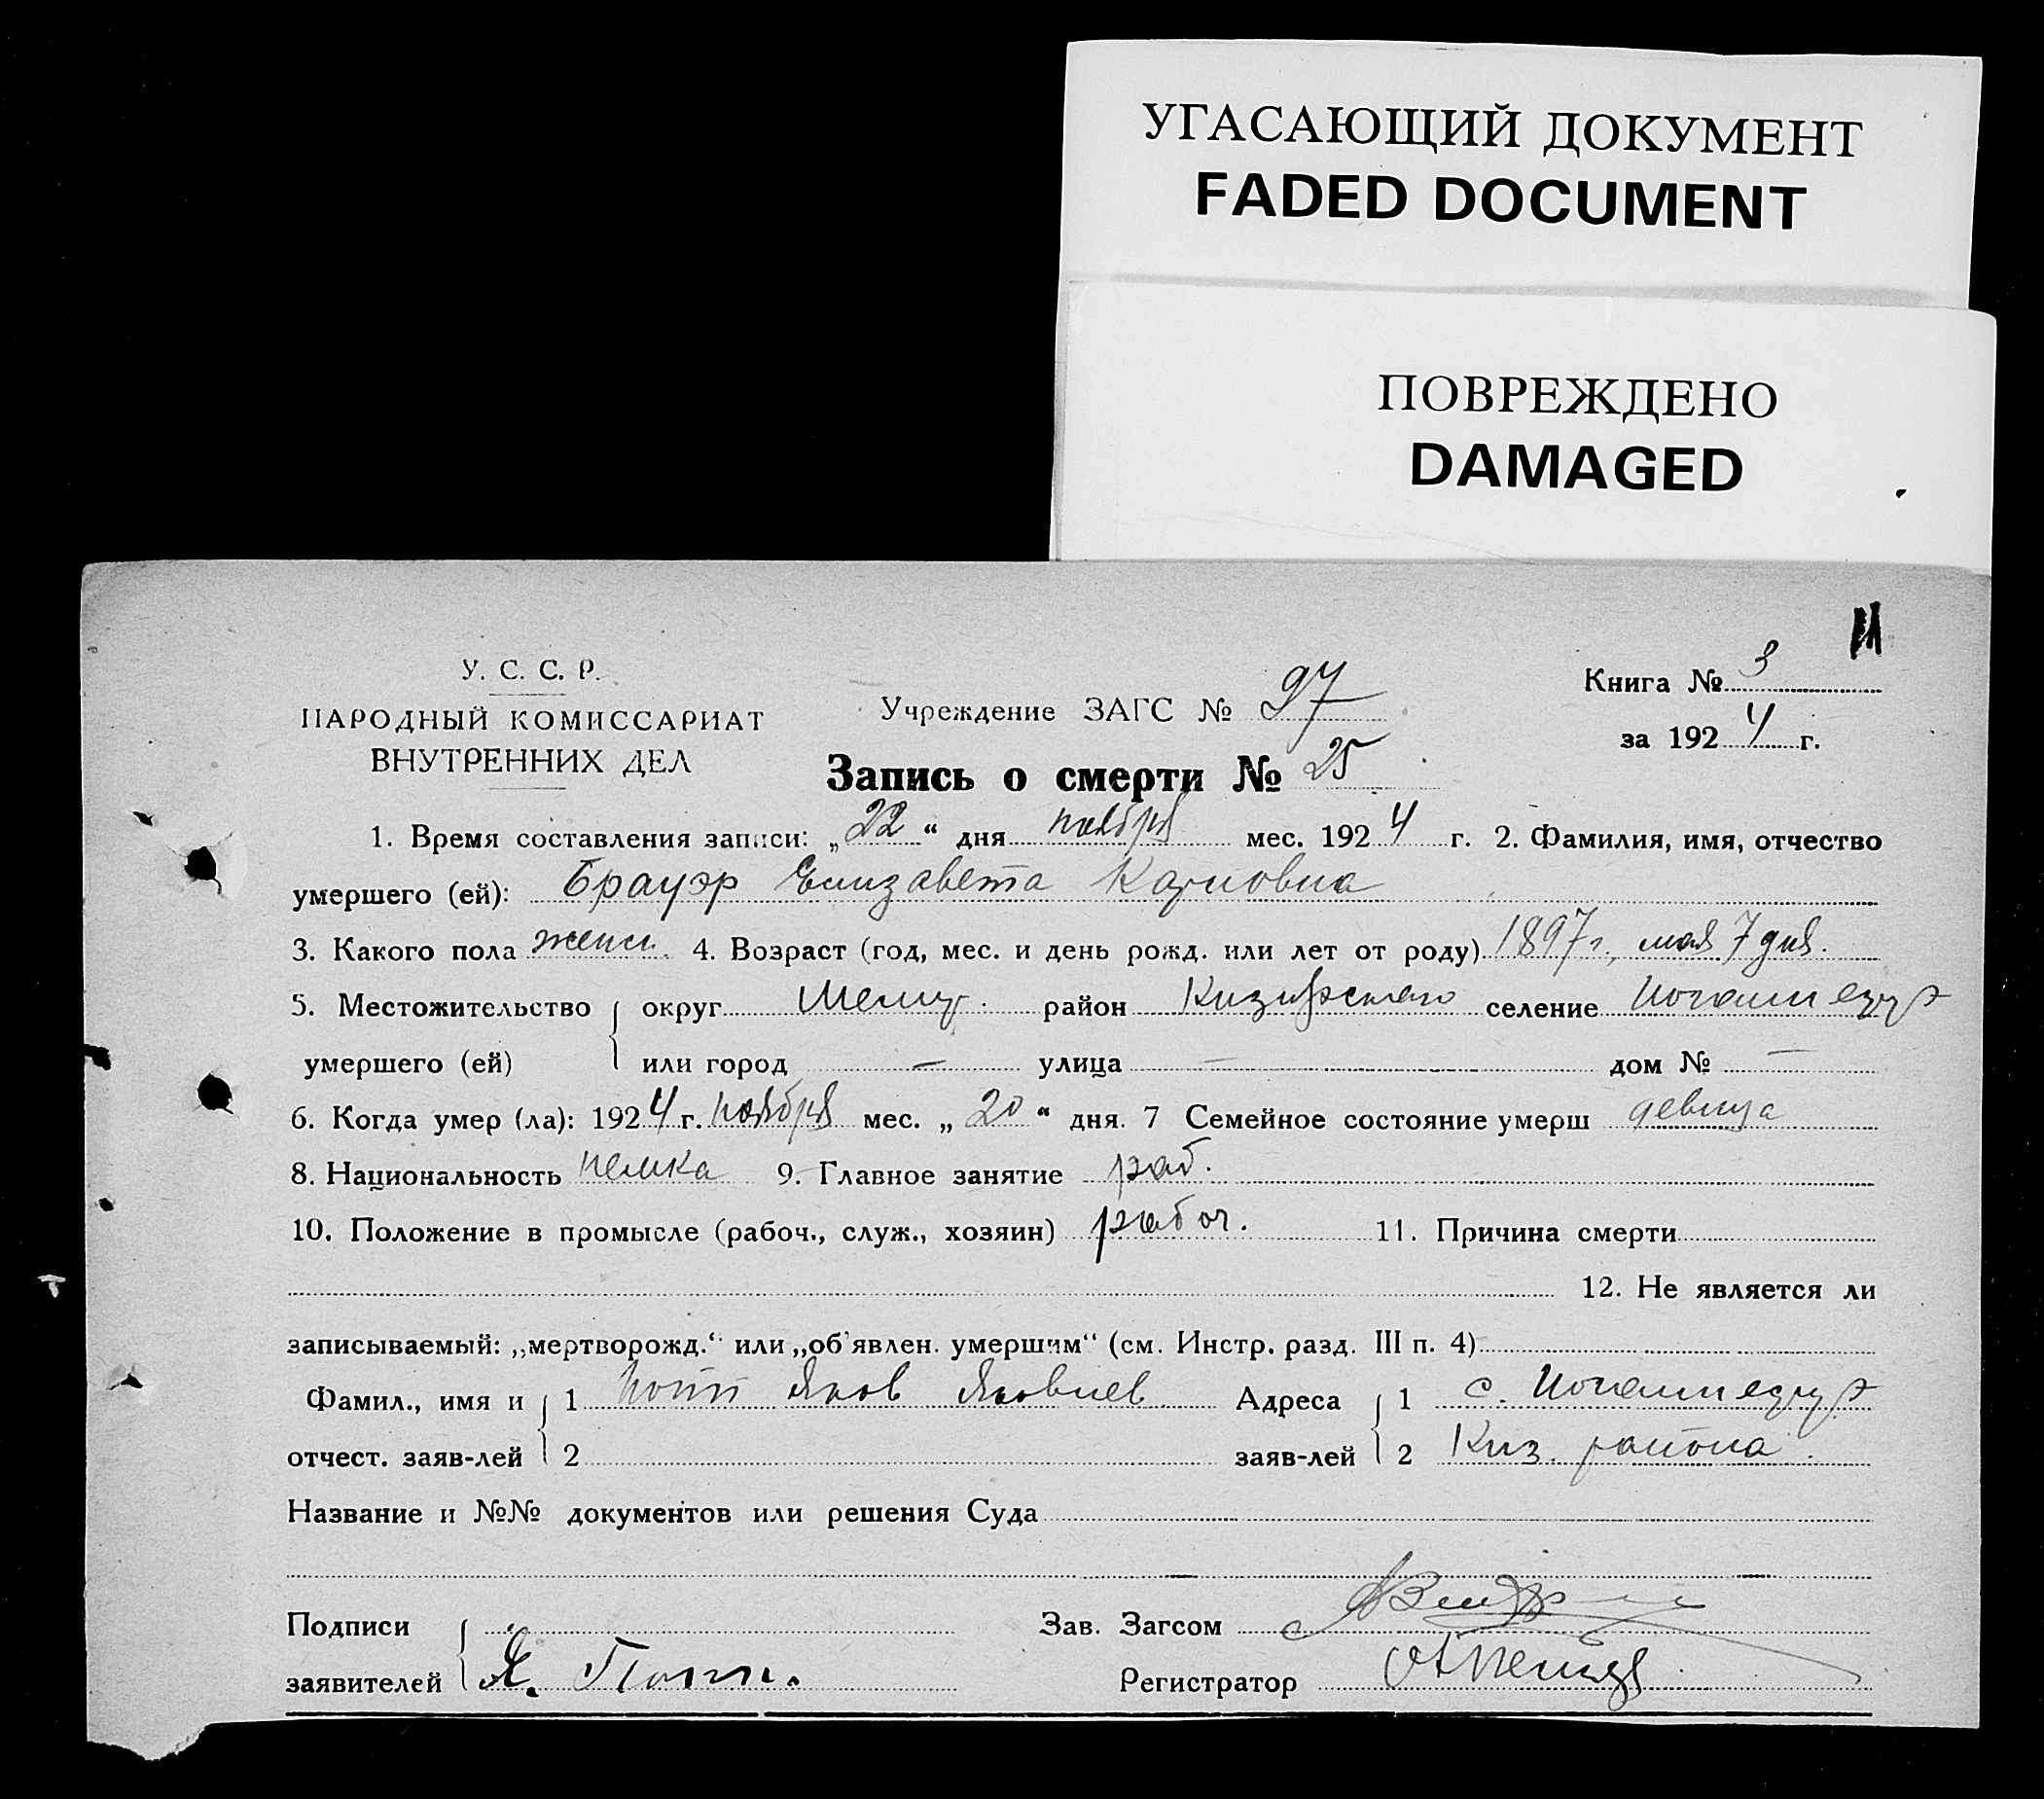 УГАСАЮЩИЙ ДОКУМЕНТ
FADED DOCUMENT
ПОВРЕЖДЕНО
DAMAGED
У. С. С. Р.
НАРОДНЫЙ КОМИССАРИАТ
ВНУТРЕННИХ ДЕЛ
Учреждение ЗАГС № 97
Книга № 3
за 1924 г.
Запись о смерти № 25
1. Время составления записи: „22“ дня ноября мес. 1924 г. 2. Фамилия, имя, отчество
умершего (ей): Брауэр Елизавета Карловна
3. Какого пола женск. 4. Возраст (год, мес. и день рожд. или лет от роду) 1897 г., мая 7 дня.
5. Местожительство округ Мелит. район селение
умершего (ей) или город — улица — дом № —
6. Когда умер (ла): 1924 г. ноября мес. „20“ дня. 7 Семейное состояние умерш девица
8. Национальность немка 9. Главное занятие раб.
10. Положение в промысле (рабоч., служ., хозяин) рабоч. 11. Причина смерти
12. Не является ли
записываемый: „мертворожд.“ или „об'явлен. умершим“ (см. Инстр. разд. III п. 4)
Фамил., имя и 1 Яков Яковлев Адреса 1 с.
отчест. заяв-лей 2 заяв-лей 2 Киз. района.
Название и №№ документов или решения Суда
Подписи Зав. Загсом
заявителей Я. Регистратор